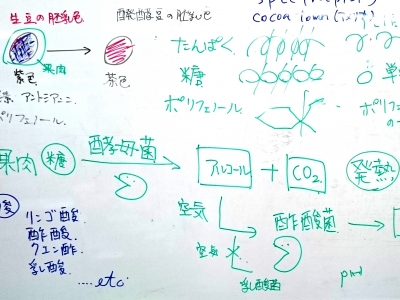 生豆の胚乳色
醗酵豆の胚乳色
果肉
紫色
茶色
アントシアニン
ポリフェノール.
たんぱく.
糖
ポリフェノール.
果肉 糖
酵母菌
アルコール + CO₂ 発熱
空気
酢酸菌
空気
乳酸菌
リンゴ酸
酢酸.
クエン酸.
乳酸.
.....etc